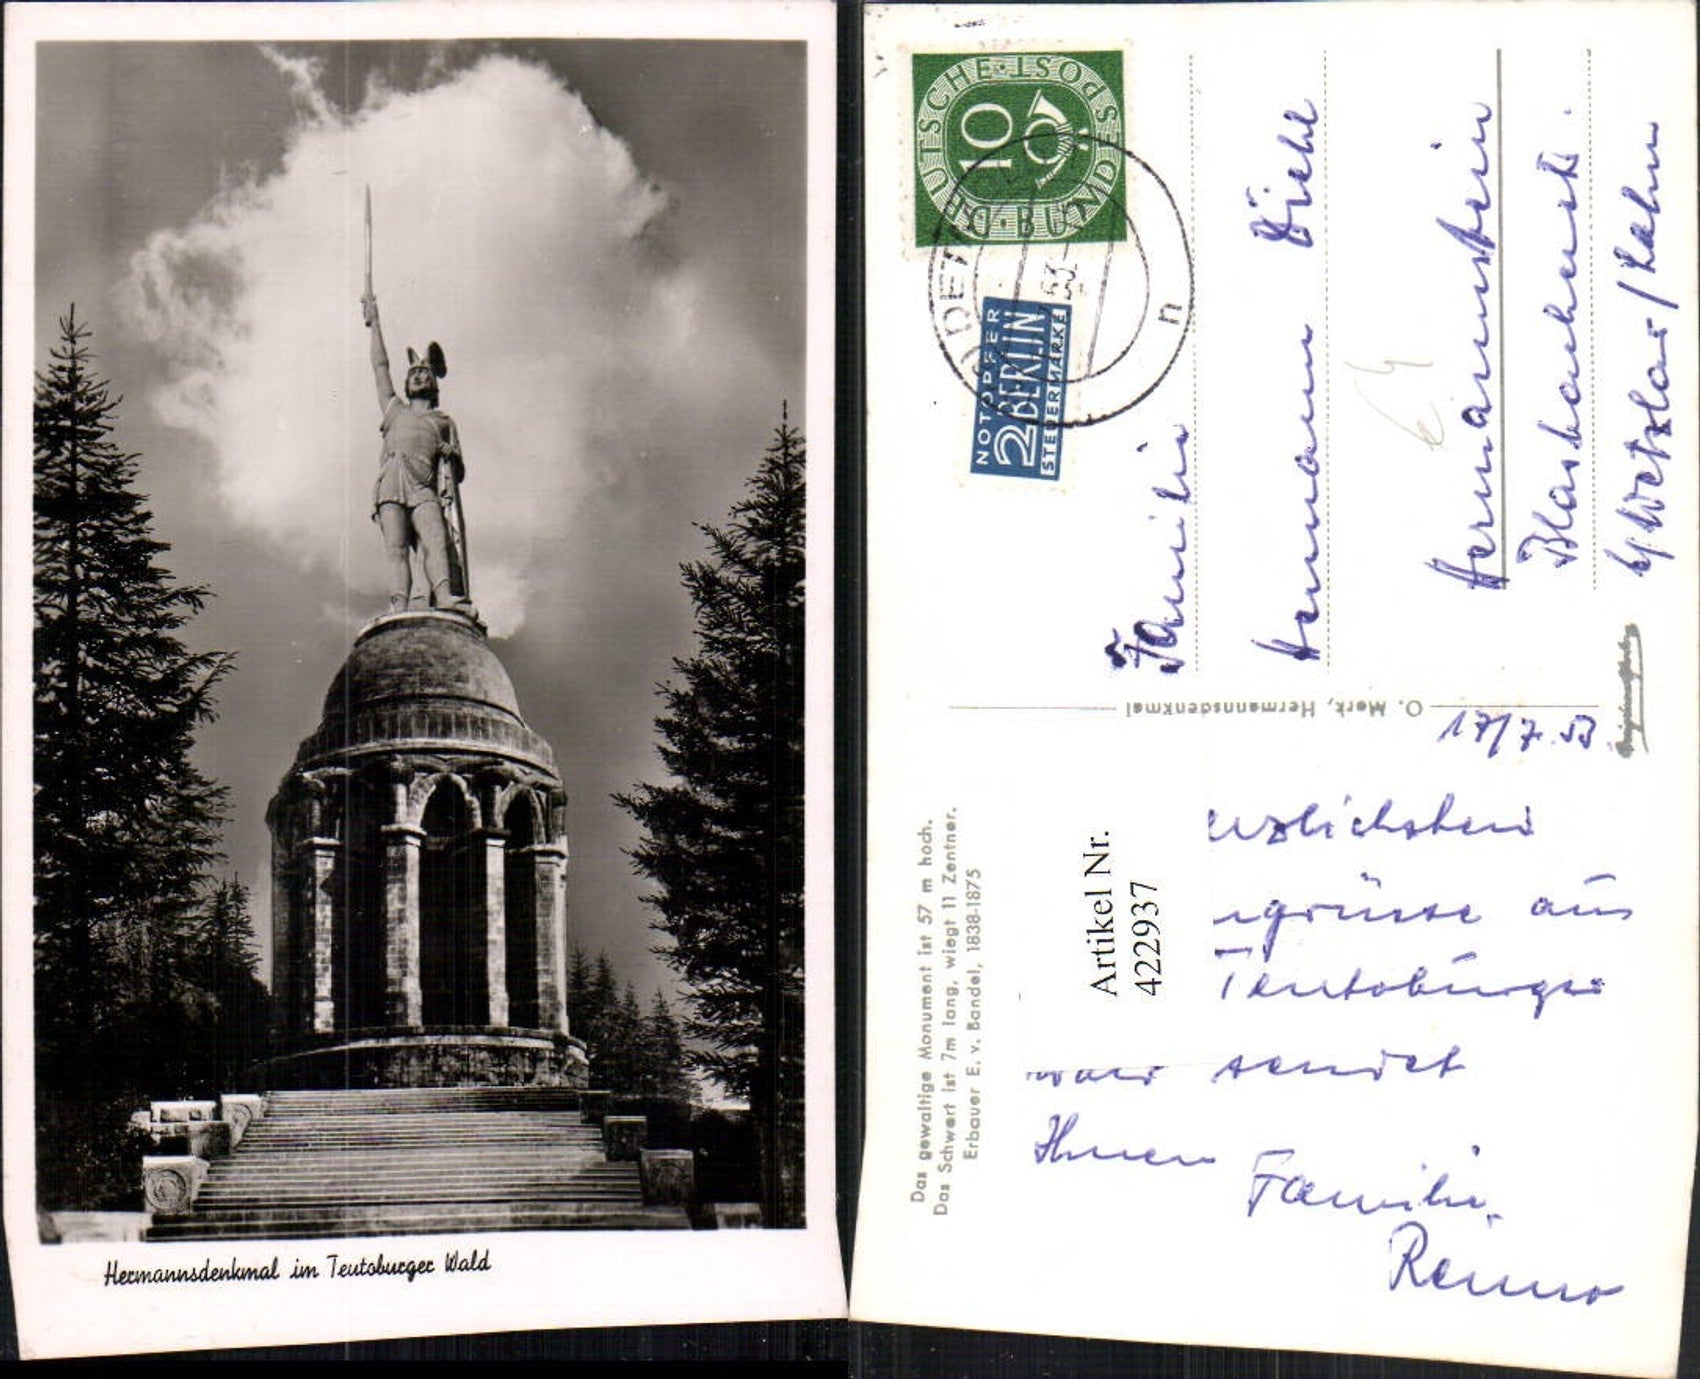 Hermannsdenkmal im Teutoburger Wald
DEUTSCHE·POST
BUNDES
10
DETM
53
n
NOTOPFER
2 BERLIN
STEUERMARKE
Familie
Hermann Diehl
Hermannstein
Blasbacherstr.
b/Wetzlar/Lahn
O. Merk, Hermannsdenkmal
Das gewaltige Monument ist 57 m hoch.
Das Schwert ist 7m lang, wiegt 11 Zentner.
Erbauer E. v. Bandel, 1838-1875
Artikel Nr.
422937
17/7.53
erzlichsten
ngrüsse aus
Teutoburger
Wald sendet
Ihnen
Familie